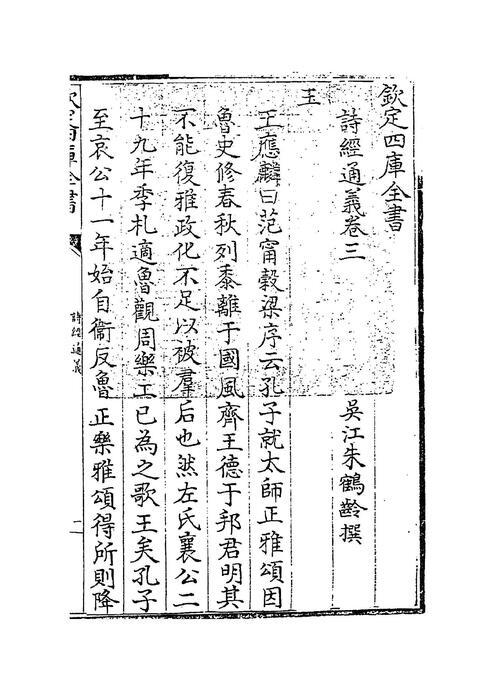 欽定四庫全書
詩經通義卷三
吳江朱鶴齡撰
王
王應麟曰范甯穀梁序云孔子就太師正雅頌因
魯史修春秋列黍離于國風齊王德于邦君明其
不能復雅政化不足以被羣后也然左氏襄公二
十九年季札適魯觀周樂工已為之歌王矣孔子
至哀公十一年始自衞反魯正樂雅頌得所則降
欽定四庫全書
詩經通義
一